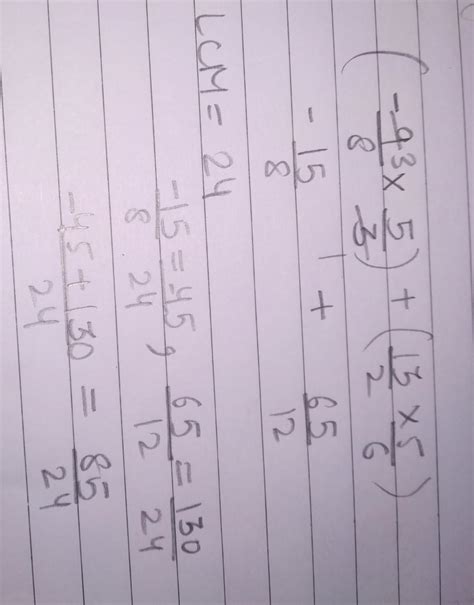 (-9̶3/8 × 5/3̶1) + (13/2 × 5/6)
-15/8 + 65/12
LCM = 24
-15/8 = -45/24 , 65/12 = 130/24
-45+130/24 = 85/24